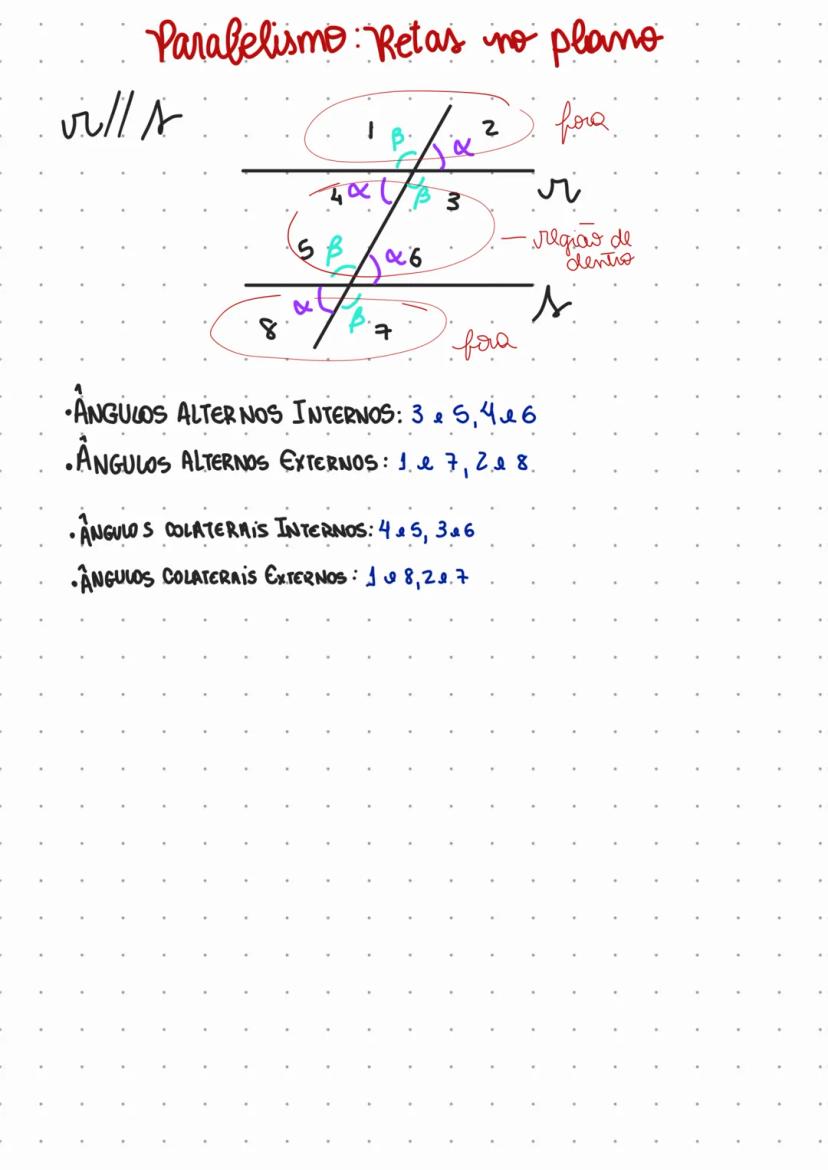 Paralelismo: Retas no plano
r // s
1 β 2 fora
α
4 α β 3 r
região de
dentro
5 β α 6
α β s
8 7 fora
• ÂNGULOS ALTERNOS INTERNOS: 3 e 5, 4 e 6
• ÂNGULOS ALTERNOS EXTERNOS: 1 e 7, 2 e 8
• ÂNGULOS COLATERAIS INTERNOS: 4 e 5, 3 e 6
• ÂNGULOS COLATERAIS EXTERNOS: 1 e 8, 2 e 7